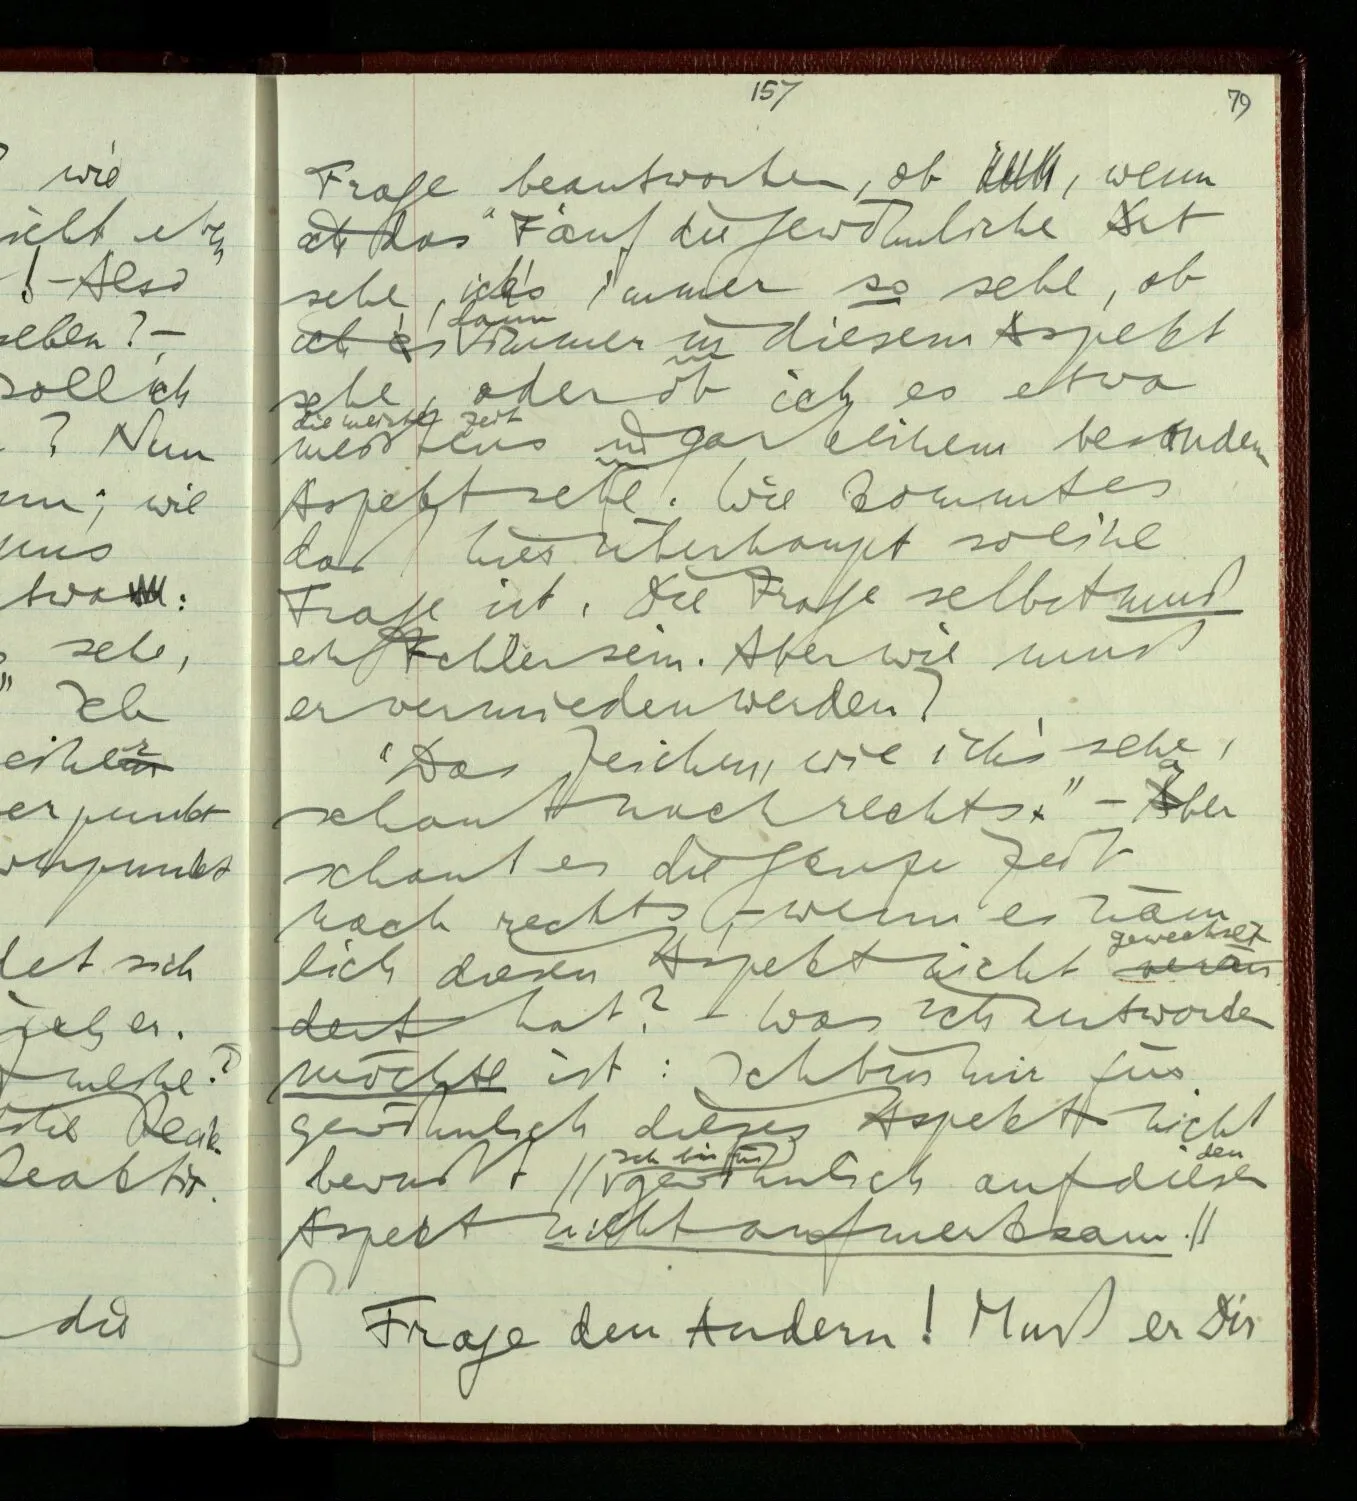 157
79
wie
! – Also
sehen? –
soll ich
? Nun
; wie
uns
sehe,
" Ich
punkt
punkt
det sich
er.
die
Frage beantworten, ob , wenn
ich das "F" auf die gewöhnliche Art
sehe, ich's immer so sehe, ob
ich es dann immer in diesem Aspekt
sehe, oder ob ich es etwa
die meiste Zeit
meistens in gar keinem besondern
Aspekt sehe. Wie kommt es
daß hier überhaupt solche
Frage ist. Die Frage selbst muß
ein Fehler sein. Aber wie muß
er vermieden werden?
"Das Zeichen, wie ich's sehe,
schaut nach rechts." – Aber
schaut es die ganze Zeit
nach rechts, – wenn es näm
lich diesen Aspekt nicht gewechselt
verän
dert hat? – Was ich antworten
möchte ist: Ich bin mir für
gewöhnlich dieses Aspekts nicht
bewußt. // Ich bin für
gewöhnlich auf diesen den
Aspekt nicht aufmerksam. //
∫ Frage den Andern! Muß er Dir